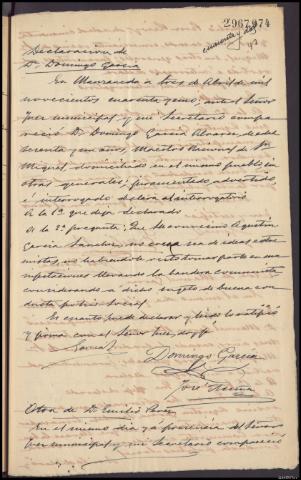 2967,974
cuarenta y dos
42
Declaracion de
D. Domingo Garcia
En Manzaneda a tres de Abril de mil
novecientos cuarenta y uno, ante el Señor
Juez municipal y mi Secretario compa-
reció D. Domingo Garcia Alvarez, de edad
y un años, Maestro Nacional de
Miguel, domiciliado en el mismo pueblo, sin
otras generales, juramentado, advertido
é interrogado declara al interrogatorio
A la 1ª que deja declarado
A la 2ª pregunta: Que al convecino Agustin
Garcia Sanchez, no crea sea de ideas extre-
mistas, no habiendole visto tomar parte en ma-
nifestaciones llevando la bandera comunista
considerando a dicho sugeto de buena con-
ducta publico social.
Es cuanto puede declarar y leido lo ratifica
y firma con el Señor Juez doy fé
Garcia
Domingo Garcia
José
Otra de D. Emilio Perez
En el mismo dia y á presencia del Señor
Juez municipal y mi Secretario compareció